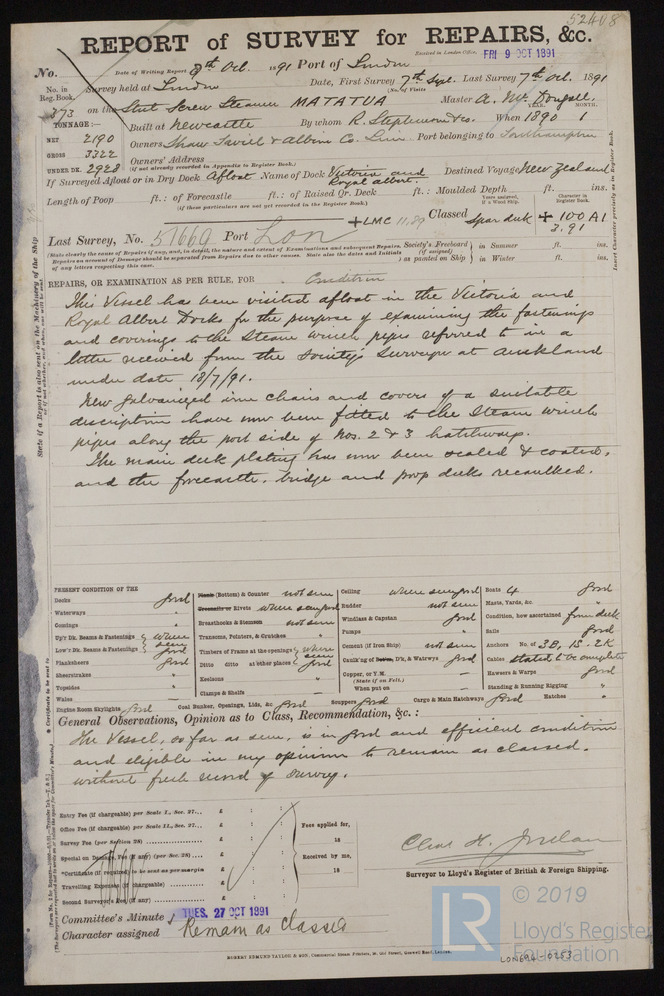 52408
REPORT of SURVEY for REPAIRS, &c.
Received in London Office, FRI 9 OCT 1891
No. Date of Writing Report 8th Oct. 1891 Port of London
No. in Reg. Book. Survey held at London Date, First Survey 7th Sept. Last Survey 7th Oct. 1891
(No. of Visits)
373 on the Steel Screw Steamer MATATUA Master A. Mc Dougall.
YEAR. MONTH.
TONNAGE:— Built at Newcastle By whom R. Stephenson & Co. When 1890 1
NET 2190 Owners Shaw Savill & Albion Co. Lim. Port belonging to Southampton
GROSS 3322 Owners' Address
(if not already recorded in Appendix to Register Book.)
UNDER DK. 2928
If Surveyed Afloat or in Dry Dock Afloat Name of Dock Victoria and Royal Albert. Destined Voyage New Zealand
Length of Poop ft.: of Forecastle ft.: of Raised Qr. Deck ft.: Moulded Depth ft. ins.
(if these particulars are not yet recorded in the Register Book.)
Years assigned, if a Wood Ship. Character in Register Book.
+LMC 11.89 Classed Spar deck + 100 A1
3.91
Last Survey, No. 51669 Port Lon
(State clearly the cause of Repairs if any, and, in detail, the nature and extent of Examinations and subsequent Repairs.
Repairs on account of Damage should be separated from Repairs due to other causes. State also the dates and Initials
of any letters respecting this case.
Society's Freeboard (if assigned) as painted on Ship in Summer ft. ins.
in Winter ft. ins.
REPAIRS, OR EXAMINATION AS PER RULE, FOR Condition
This Vessel has been visited afloat in the Victoria and
Royal Albert Docks for the purpose of examining the fastenings
and coverings to the Steam winch pipes referred to in a
letter received from the Society's Surveyor at Auckland
under date 18/7/91.
New galvanized iron chains and covers of a suitable
description have now been fitted to the Steam winch
pipes along the port side of Nos. 2 & 3 hatchways.
The main deck plating has now been scaled & coated,
and the forecastle, bridge and poop decks recaulked.
PRESENT CONDITION OF THE
Decks good
Waterways "
Comings "
Up'r Dk. Beams & Fastenings where seen
Low'r Dk. Beams & Fastenings good
Planksheers good
Sheerstrakes "
Topsides "
Wales —
Plank (Bottom) & Counter not seen
Treenails or Rivets where seen good
Breasthooks & Stemson not seen
Transoms, Pointers, & Crutches "
Timbers of Frame at the openings where seen
Ditto ditto at other places good
Keelsons "
Clamps & Shelfs —
Ceiling where seen good
Rudder not seen
Windlass & Capstan good
Pumps "
Cement (if Iron Ship) not seen
Caulk'ng of Bottom, D'k, & Waterwys good
Copper, or Y.M. —
(State if on Felt.)
When put on —
Boats 4 good
Masts, Yards, &c. "
Condition, how ascertained from deck
Sails good
Anchors No. of 3B, 1S. 2K
Cables stated to be complete
Hawsers & Warps good
Standing & Running Rigging "
Engine Room Skylights good Coal Bunker, Openings, Lids, &c good Scuppers good Cargo & Main Hatchways good Hatches "
General Observations, Opinion as to Class, Recommendation, &c. :
The Vessel, so far as seen, is in good and efficient condition
and eligible in my opinion to remain as classed.
without fresh record of survey.
Entry Fee (if chargeable) per Scale I., Sec. 27... £ : :
Office Fee (if chargeable) per Scale II., Sec. 27... £ : :
Survey Fee (per Section 28) £ : :
Special on Damage, Fee (if any) (per Sec. 28) £ : :
*Certificate (if required) to be sent as per margin
Travelling Expenses (if chargeable) £ : :
Second Surveyor's Fee, (if any) £ : :
Fees applied for,
18
Received by me,
18
Surveyor to Lloyd's Register of British & Foreign Shipping.
Committee's Minute TUES. 27 OCT 1891
Character assigned Remain as classed
ROBERT EDMUND TAYLOR & SON, Commercial Steam Printers, Goswell Road, London.
LR
© 2019
Lloyd's Register
Foundation
LON694-0253